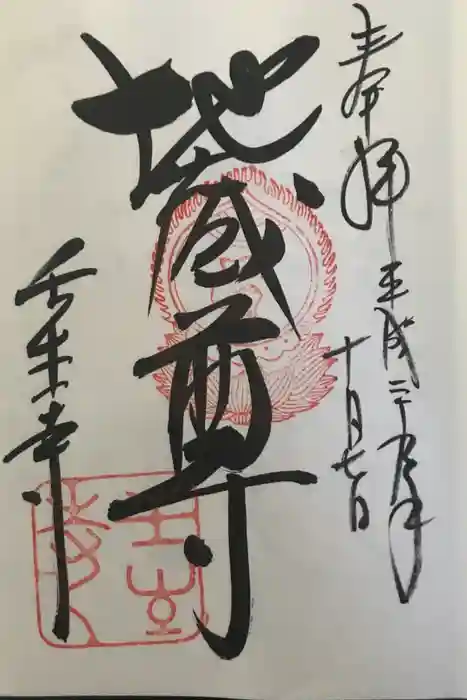 奉拝 平成二十九年
十月七日
地蔵尊
壬生寺